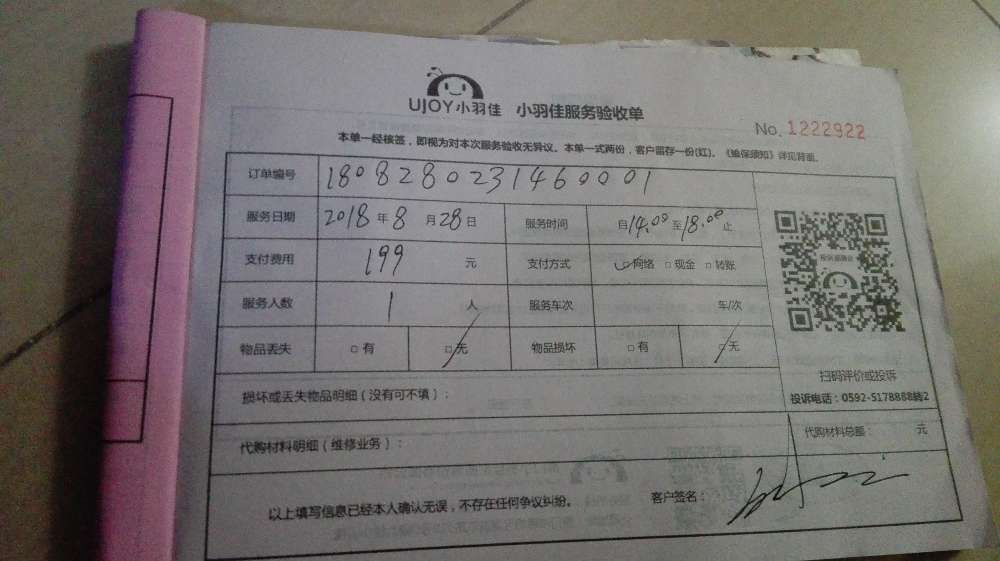 UJOY小羽佳 小羽佳服务验收单
No. 1222922
本单一经核签，即视为对本次服务验收无异议。本单一式两份，客户留存一份(红)。《验保须知》详见背面。
订单编号 1808280231460001
服务日期 2018年8月28日 服务时间 自14.00至18.00止
支付费用 199 元 支付方式 □网络 □现金 □转账
服务人数 1 人 服务车次 车/次
物品丢失 □有 □无 物品损坏 □有 □无
扫码评价或投诉
损坏或丢失物品明细（没有可不填）：
投诉电话：0592-5178888转2
代购材料明细（维修业务）： 代购材料总额： 元
以上填写信息已经本人确认无误，不存在任何争议纠纷。 客户签名：